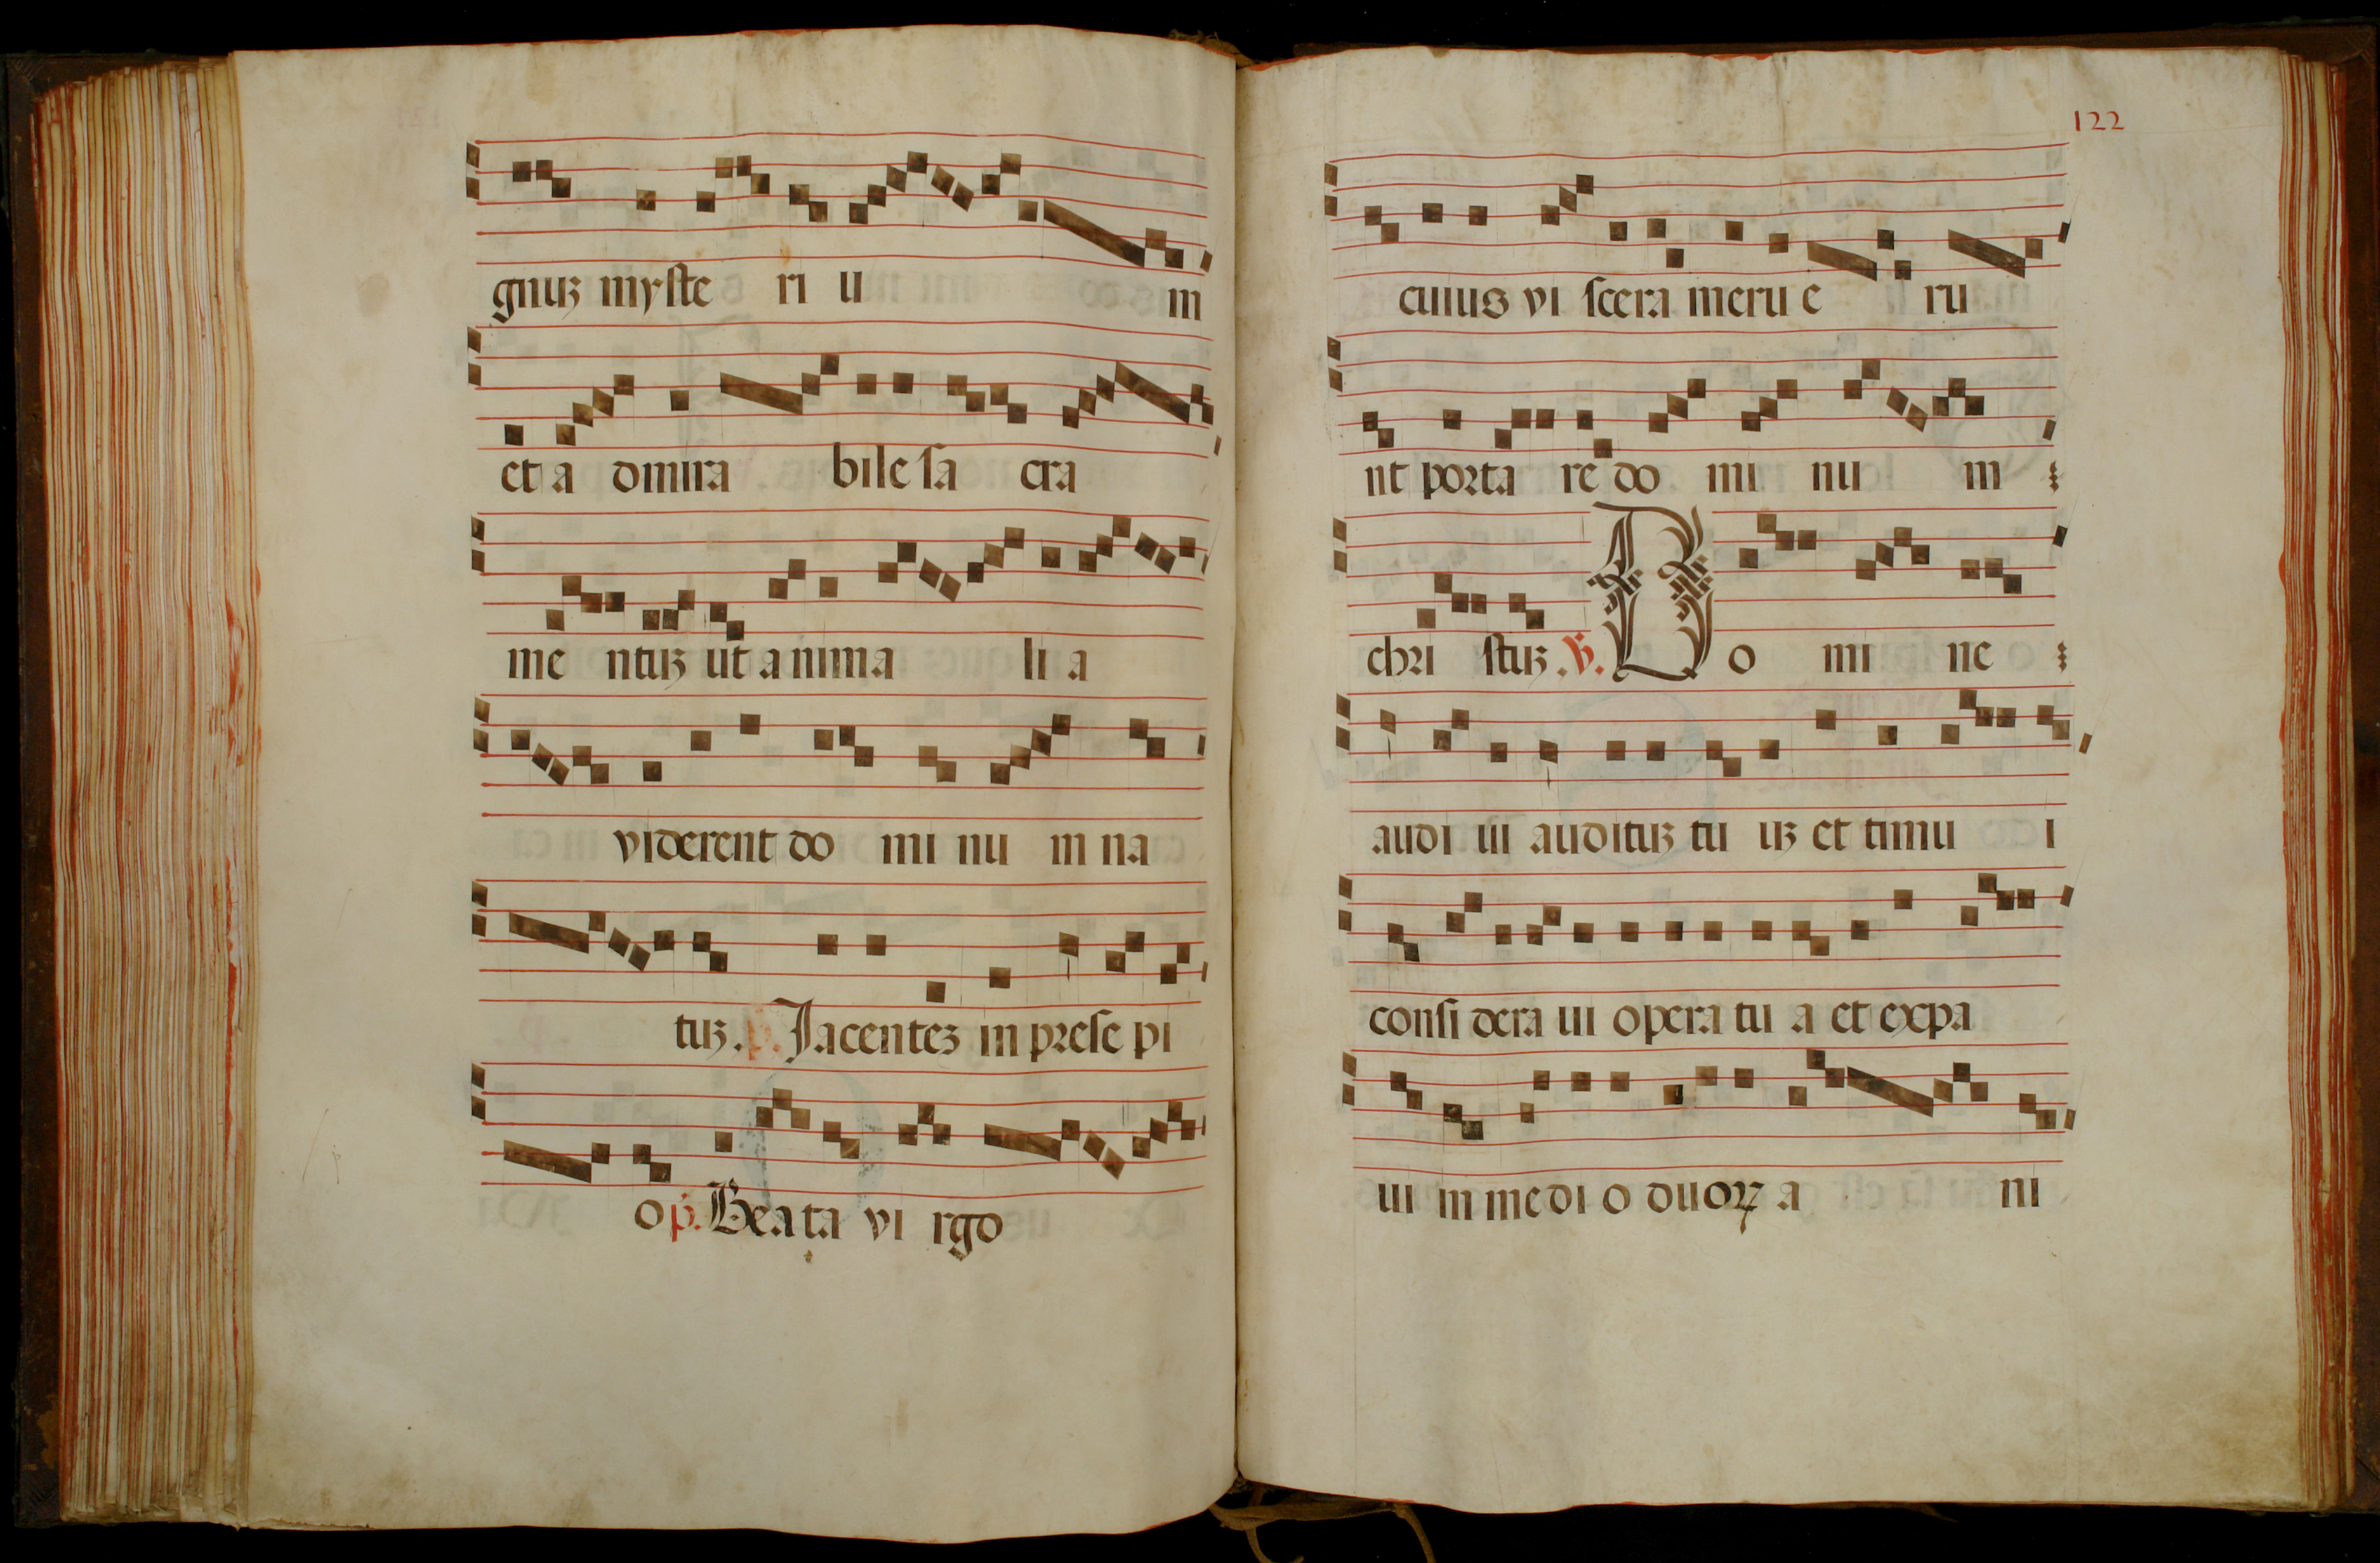 gnuʒ myſte ri u m
et a dmira bile ſa cra
me ntuʒ ut a nima li a
viderent do mi nu m na
tuʒ. p. Jacenteʒ in preſe pi
o p. Beata vi rgo
122
cuius vi ſcera meru e ru
nt porta re do mi nu m
chri ſtuʒ. ℣. Do mi ne
audi ui audituʒ tu uʒ et timu i
conſi dera ui opera tu a et expa
ui in medi o duoꝝ a ni